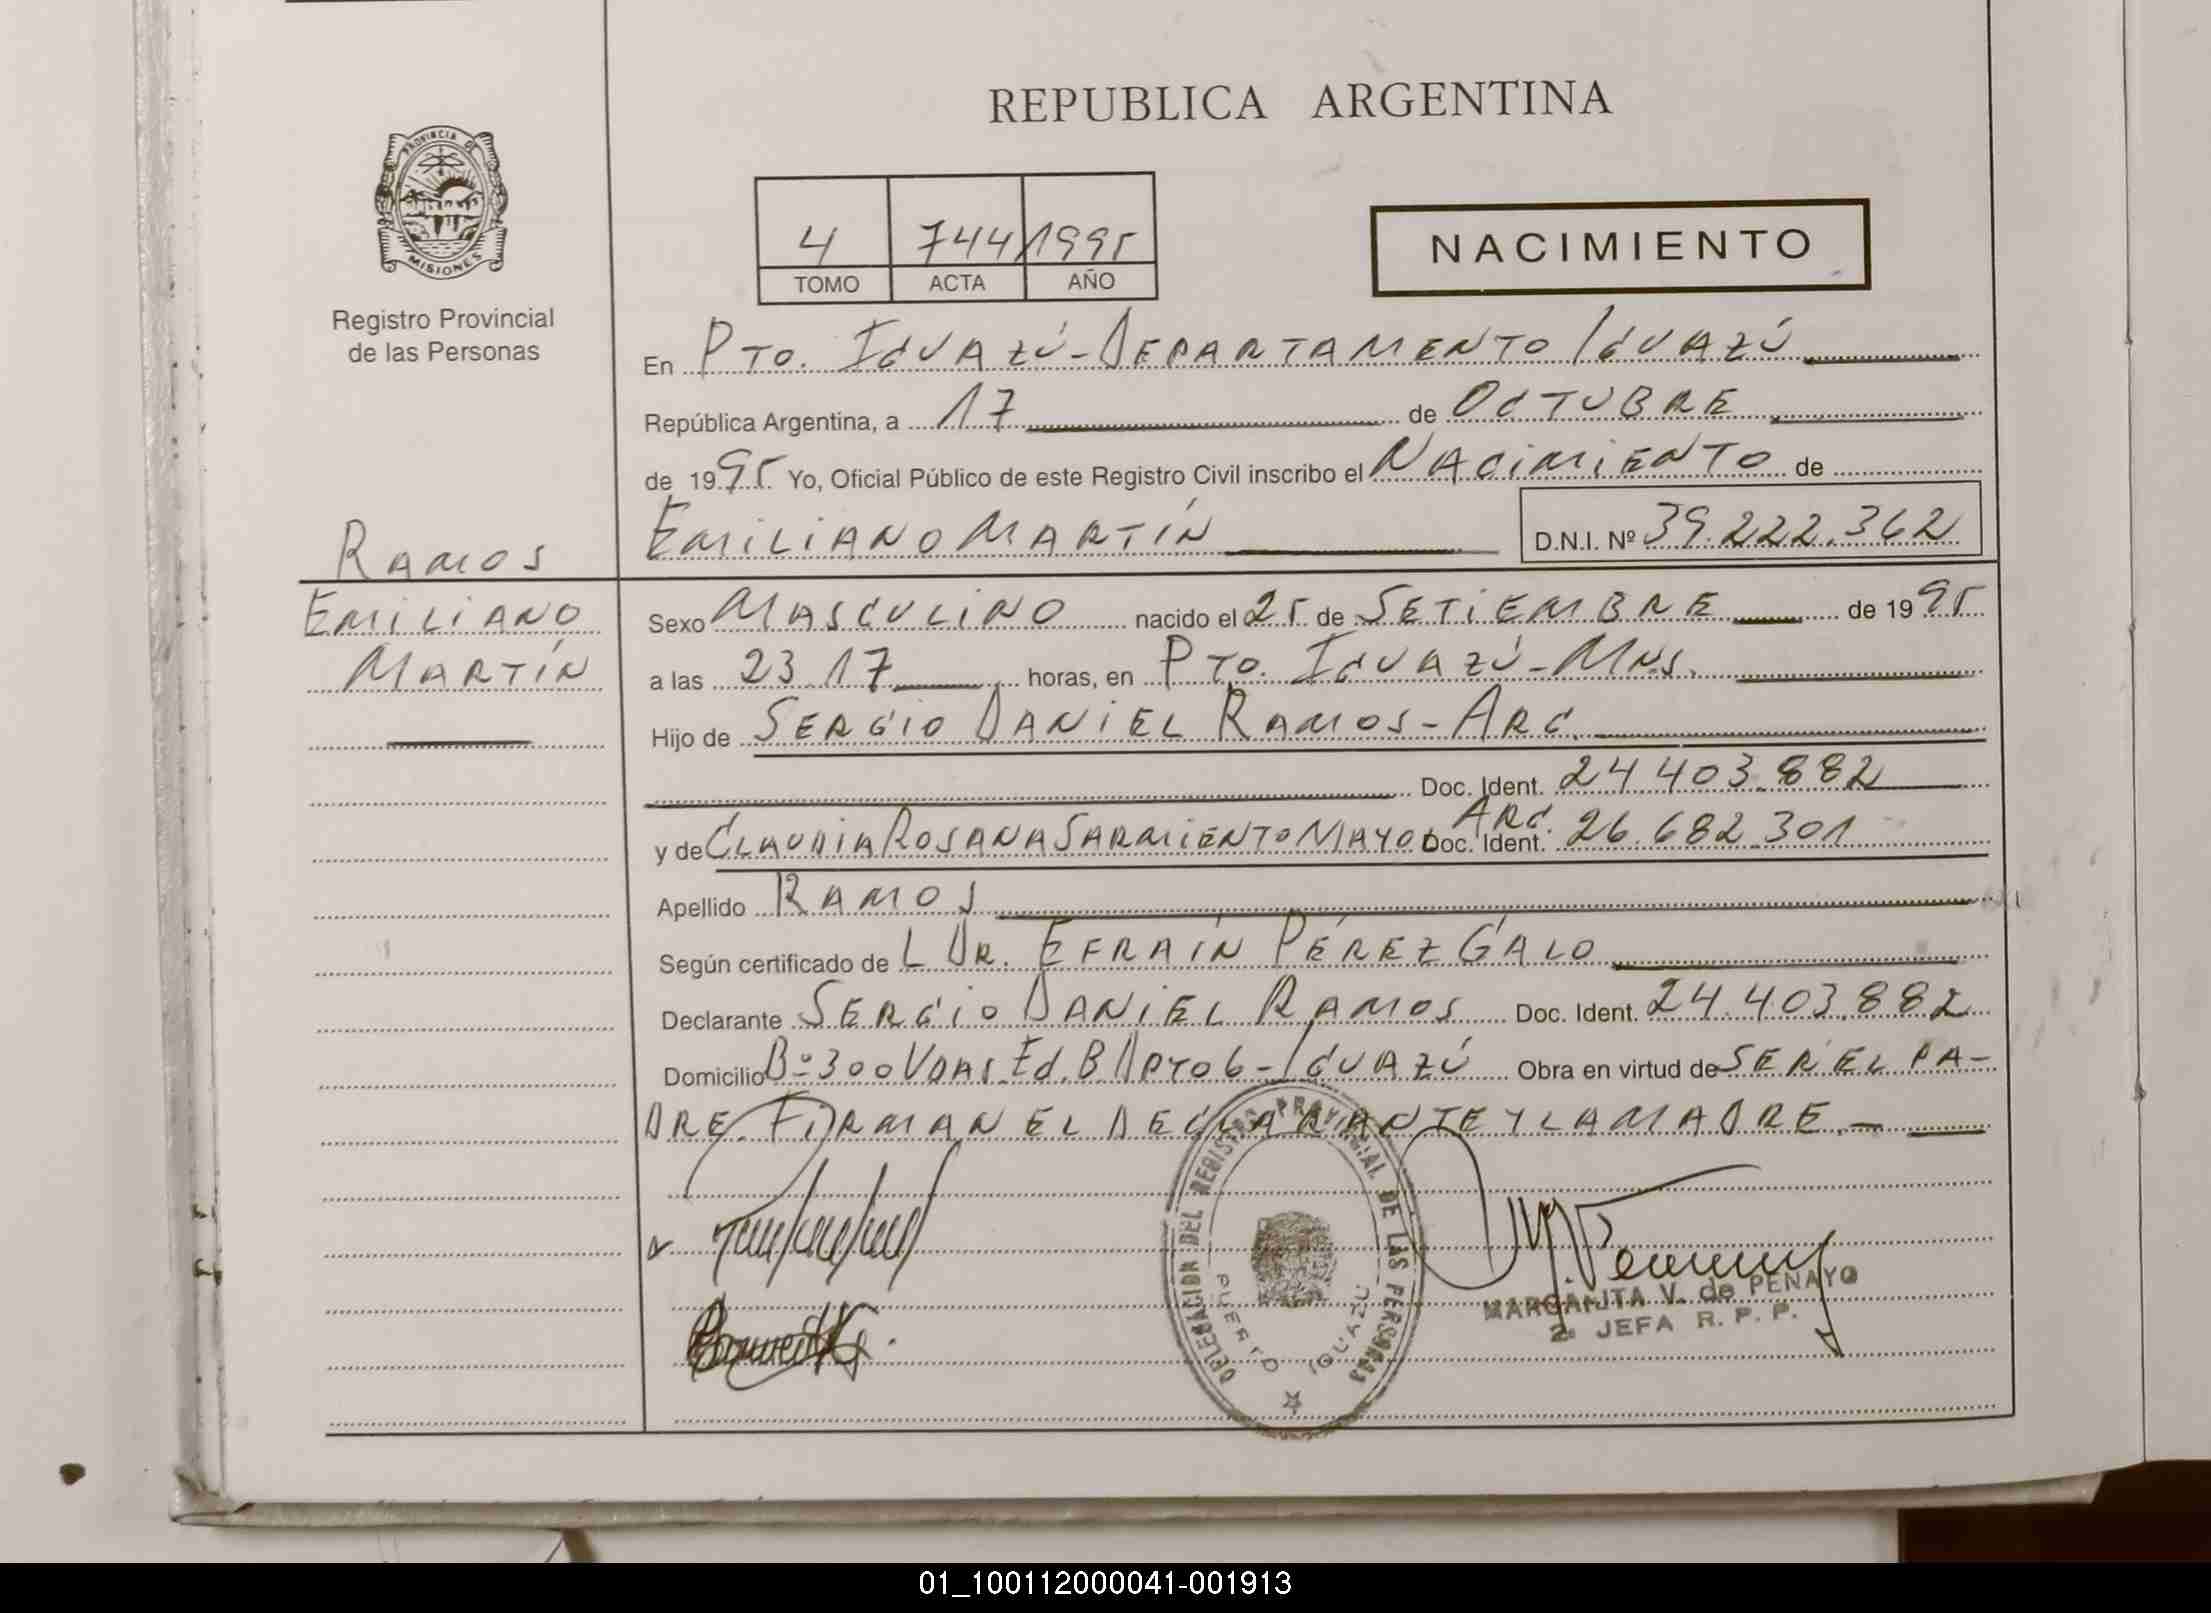 REPUBLICA ARGENTINA
PROVINCIA DE
MISIONES
Registro Provincial
de las Personas
4 744 1995
TOMO ACTA AÑO
NACIMIENTO
En Pto. Iguazú - Departamento Iguazú
República Argentina, a 17 de Octubre
de 1995 Yo, Oficial Público de este Registro Civil inscribo el Nacimiento de
Emiliano Martín D.N.I. Nº 39.222.362
Ramos
Emiliano
Martín
Sexo Masculino nacido el 25 de Setiembre de 1995
a las 23.17 horas, en Pto. Iguazú - Mns.
Hijo de Sergio Daniel Ramos - Arg.
Doc. Ident. 24.403.882
Arg.
y de Claudia Rosana Sarmiento Mayo Doc. Ident. 26.682.301
Apellido Ramos
Según certificado de L Dr. Efraín Pérez Galo
Declarante Sergio Daniel Ramos Doc. Ident. 24.403.882
Domicilio Bº 300 Vdas. Ed. B Dpto 6 - Iguazú Obra en virtud de ser el pa-
dre. Firman el declarante y la madre. -
DELEGACION DEL REGISTRO PROVINCIAL DE LAS PERSONAS
PUERTO IGUAZU
MARGARITA V. de PENAYO
2a JEFA R. P. P.
01_100112000041-001913